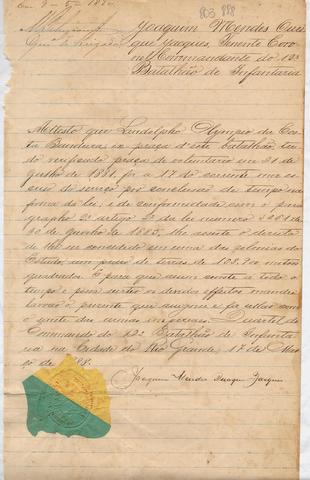 803 888
Joaquim Mendes Ouri-
que Jacques, Tenente Coro-
nel Commandante do 12º
Batalhão de Infantaria
Attesto que Landolpho Olympio da Cos-
ta Bandeira ex praça d'este batalhão, ten-
do verificado praça de voluntario em 21 de
Junho de 1881, foi a 17 do corrente
do serviço por conclusão de tempo na
forma da lei, e de conformidade com o para-
grapho 2º artigo 2º da lei numero
30 de Junho de 1885, lhe assiste o direito
de lhe ser concedido em uma das colonias do
Estado, um praso de terras de 108.900 metros
quadrados. E para que assim conste a todo o
tempo e possa surtir os devidos effeitos mandei
lavrar o presente que assigno e fiz sellar com
o das armas imperiaes. Quartel do
Commando do 12º Batalhão de Infanta-
ria na Cidade do Rio Grande 17 de
de 1888.
Joaquim Mendes Ourique Jacques